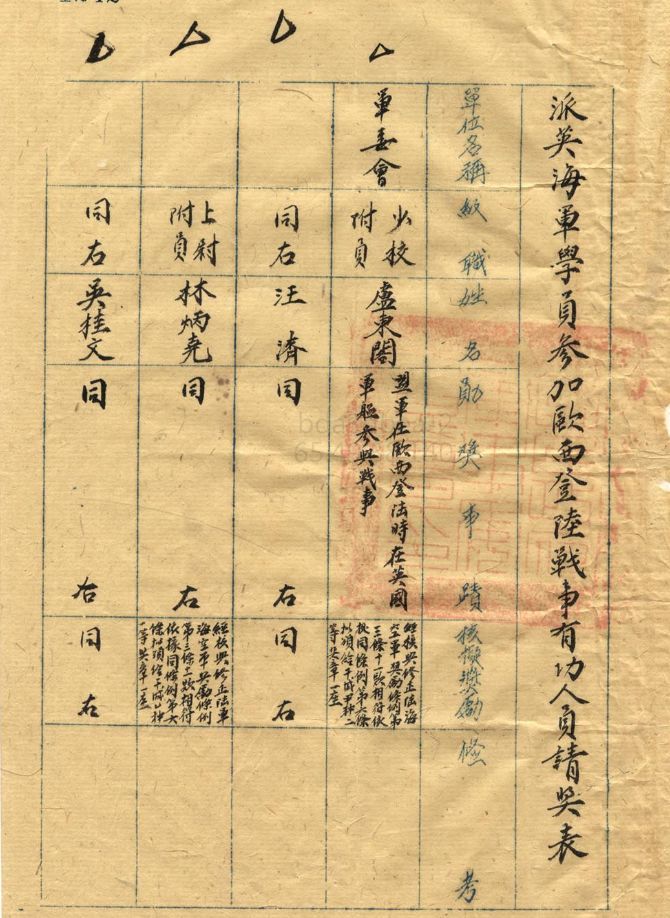 派英海軍學員參加歐西登陸戰事有功人員請奬表
單位名稱 級職 姓名 勛奬事蹟 核擬奬勵 條考
軍委會 少校附員 盧東閣 盟軍在歐西登陸時在英國軍艦參與戰事 經核與修正陸海空軍奬勵條例第三條十一款相符依據同條例第六條 項給干城甲種二等奬章一座
同右 汪濟 同右 同右
上尉附員 林炳堯 同右 經核與修正陸軍海空軍奬勵條例第三條 款相符依據同條例第六條 項給干城 種一等奬章一座
同右 吳桂文 同右 同右